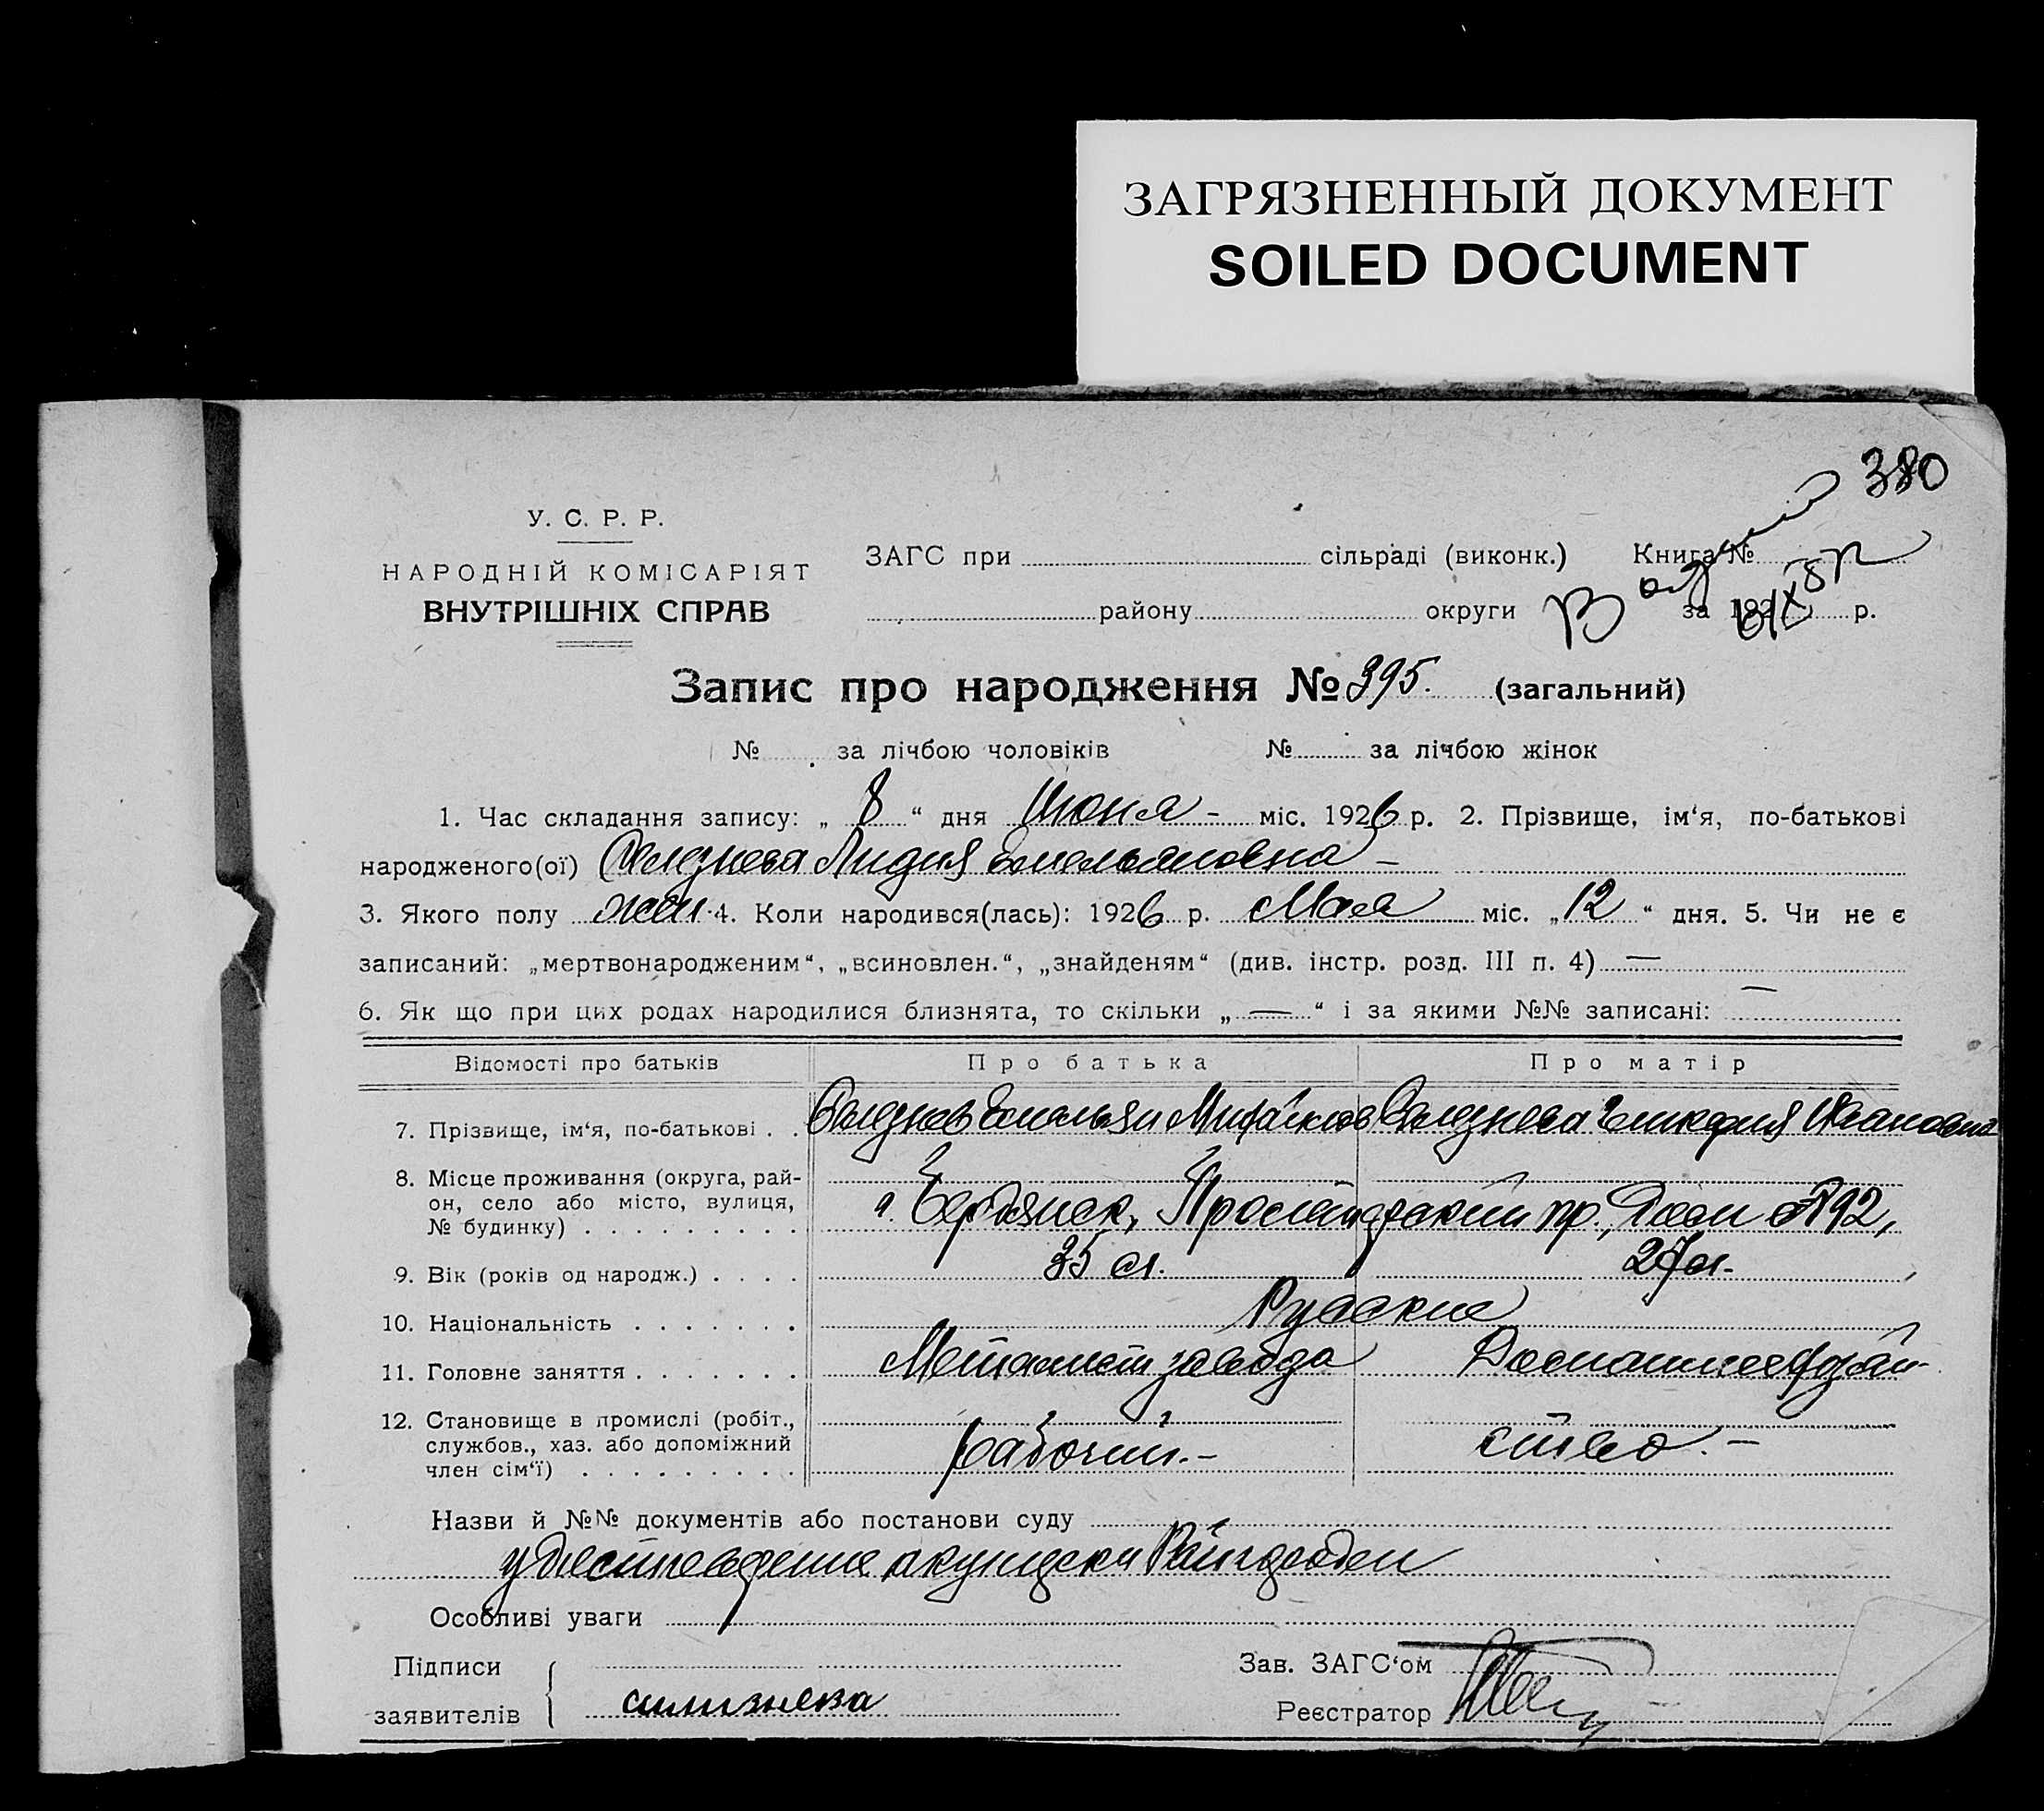 ЗАГРЯЗНЕННЫЙ ДОКУМЕНТ
SOILED DOCUMENT
380
У. С. Р. Р.
НАРОДНІЙ КОМІСАРІЯТ
ВНУТРІШНІХ СПРАВ
ЗАГС при сільраді (виконк.) Книга №
району округи за 192 р.
Запис про народження № 395. (загальний)
№ за лічбою чоловіків № за лічбою жінок
1. Час складання запису: „ 8 “ дня Июня - міс. 1926 р. 2. Прізвище, ім‘я, по-батькові
народженого(ої) Селезнева Лидия Емельяновна -
3. Якого полу жен. 4. Коли народився(лась): 1926 р. Мая міс. „12“ дня. 5. Чи не є
записаний: „мертвонародженим“, „всиновлен.“, „знайденям“ (див. інстр. розд. III п. 4) —
6. Як що при цих родах народилися близнята, то скільки „ — “ і за якими №№ записані: —
Відомості про батьків Про батька Про матір
7. Прізвище, ім‘я, по-батькові . . Селезнев Емельян Селезнева Ивановна
8. Місце проживання (округа, рай-
он, село або місто, вулиця,
№ будинку) . . . . . . . . . г. Бердянск, Пролетарский пр., Дом № 92,
9. Вік (років од народж.) . . . . 35 л. 27 л.
10. Національність . . . . . . . Русские
11. Головне заняття . . . . . . . Металист завода Домашнее хозяй-
12. Становище в промислі (робіт.,
службов., хаз. або допоміжний
член сім‘ї) . . . . . . . . . рабочий. - ство. -
Назви й №№ документів або постанови суду
удостоверение акушерки
Особливі уваги
Підписи
заявителів силизнева
Зав. ЗАГС‘ом
Реєстратор